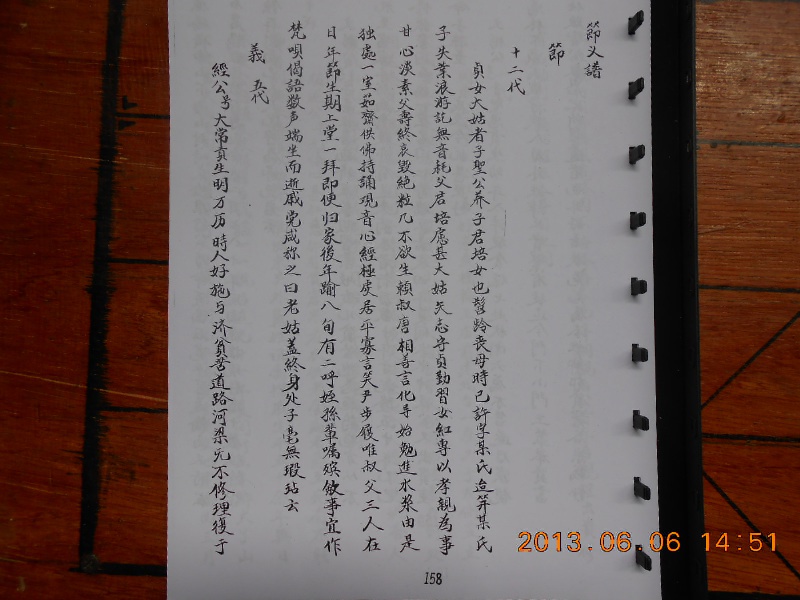 節义譜
節
十二代
貞女大姑者子聖公养子君培女也髫龄丧母時已許字某氏迨笄某氏
子失業浪游託無音耗父君培慮甚大姑矢志守貞勤習女紅專以孝親為事
甘心淡素父壽終哀毀絕粒几不欲生賴叔唐相善言化导始勉進水浆由是
独處一室茹齋供佛持誦观音心經極虔居平寡言笑尹步履唯叔父三人在
日年節生期上堂一拜即使归家後年踰八旬有二呼姪孫輩嘱殡殮事宜作
梵唄偈語数声端坐而逝戚党咸称之曰老姑盖終身处子毫無瑕玷云
義 五代
經公号大常貢生明万历時人好施与济貧苦道路河梁无不修理復于
158
2013.06.06 14:51